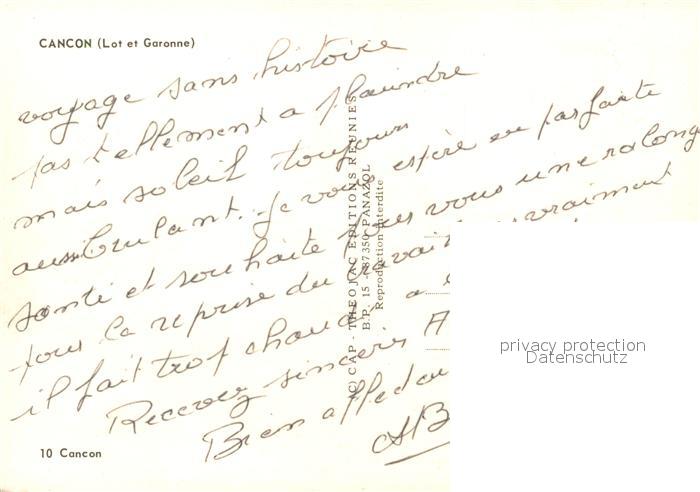 CANCON (Lot et Garonne)
voyage sans histoire
pas tellement a plaindre
mais soleil toujours
aussi brulant. Je vous espère en parfaite
santé et souhaite pour vous une ralong
pour la reprise du travail vraiment
il fait trop chaud a
Recevez sincères A
Bien affectu
AB
© CAP - THEOJAC EDITIONS REUNIES
B.P. 15 - 87350 PANAZOL
Reproduction interdite
10 Cancon
privacy protection
Datenschutz